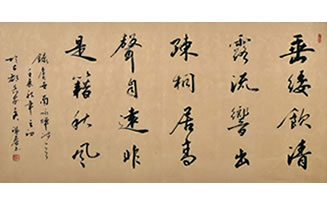 垂緌飲清
露流響出
疎桐居高
聲自遠非
是籍秋風
錄虞世南
壬辰秋